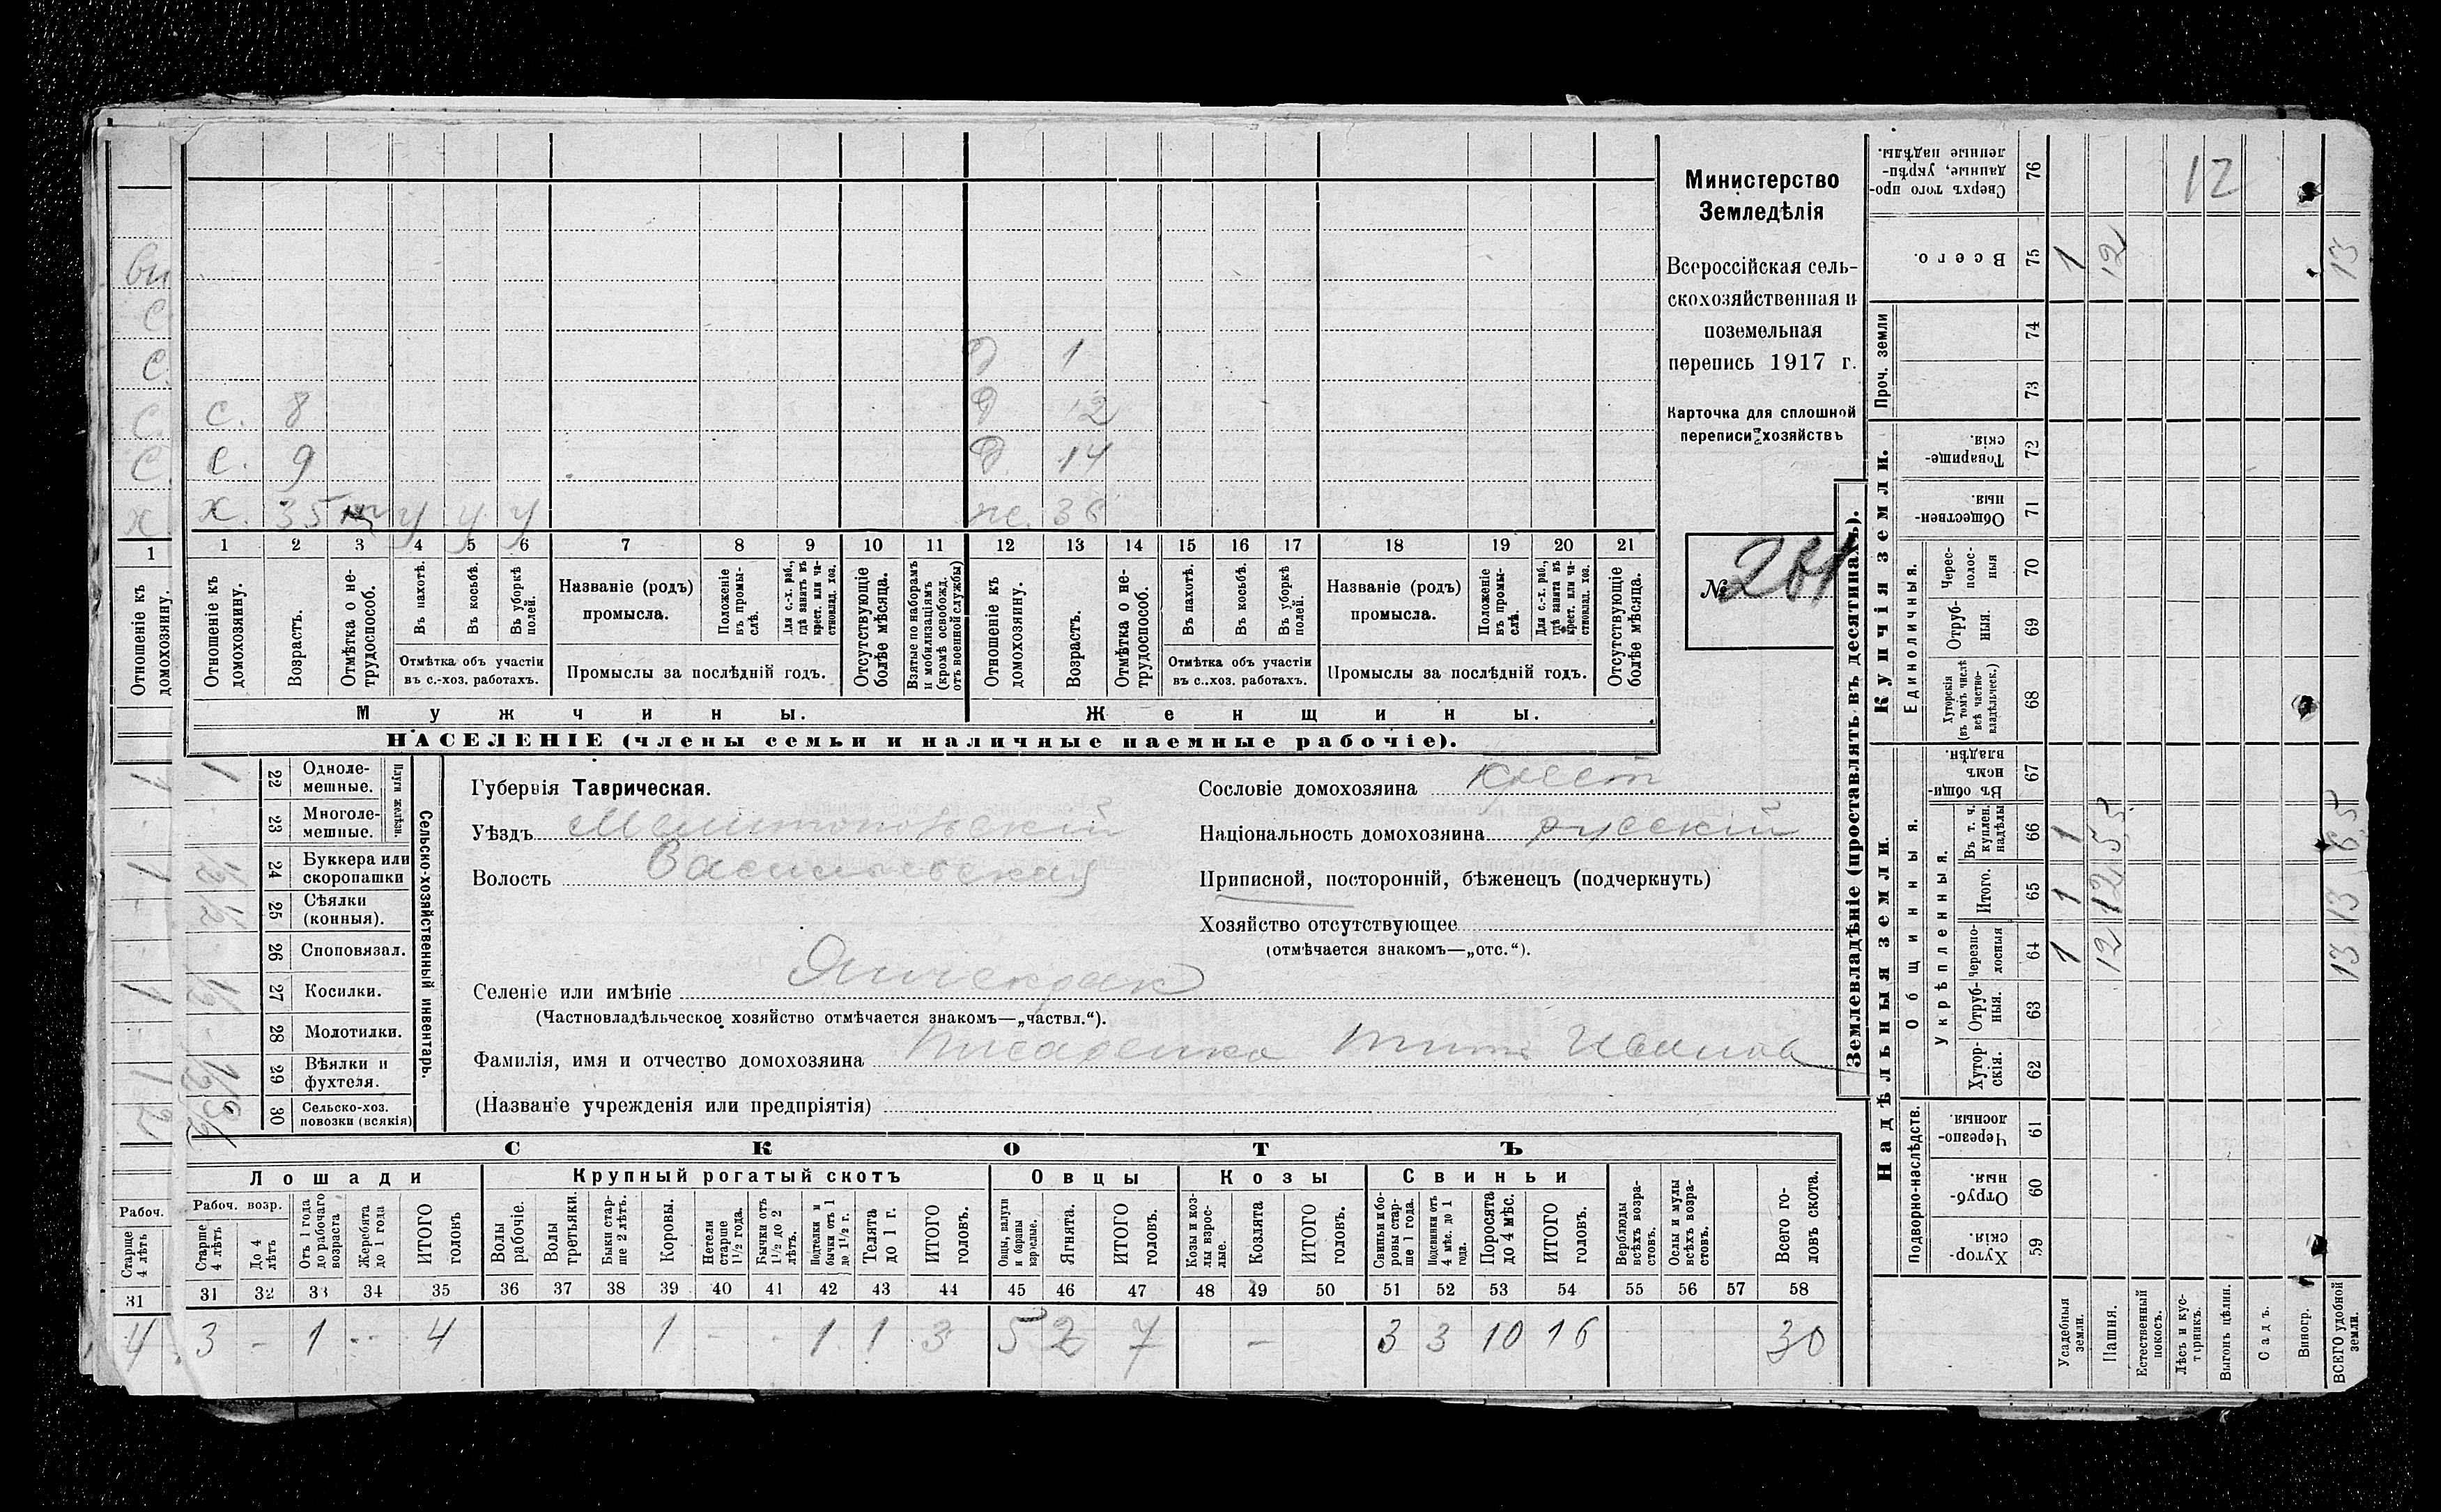 Министерство
Земледѣлія
Всероссійская сель-
скохозяйственная и
поземельная
перепись 1917 г.
Карточка для сплошной
переписи хозяйствъ
№ 261
д 1
с. 8 д 12
с. 9 д. 14
х. 35 у у у же. 36
1 2 3 4 5 6 7 8 9 10 11 12 13 14 15 16 17 18 19 20 21
Отношеніе къ домохозяину.
Возрастъ.
Отмѣтка о не-трудоспособ.
Въ пахотѣ.
Въ косьбѣ.
Въ уборкѣ полей.
Отмѣтка объ участіи
въ с.-хоз. работахъ.
Названіе (родъ)
промысла.
Положеніе въ промы-слѣ.
Для с.-х. раб., гдѣ занятъ въ крест. или ча-стновлад. хоз.
Промыслы за послѣдній годъ.
Отсутствующіе болѣе мѣсяца.
Взятые по наборамъ и мобилизаціямъ (кромѣ освобожд. отъ военной службы)
Отношеніе къ домохозяину.
Возрастъ.
Отмѣтка о не-трудоспособ.
Въ пахотѣ.
Въ косьбѣ.
Въ уборкѣ полей.
Отмѣтка объ участіи
въ с.-хоз. работахъ.
Названіе (родъ)
промысла.
Положеніе въ промы-слѣ.
Для с.-х. раб., гдѣ занята въ крест. или ча-стновлад. хоз.
Промыслы за послѣдній годъ.
Отсутствующіе болѣе мѣсяца.
Мужчины. Женщины.
НАСЕЛЕНІЕ (члены семьи и наличные наемные рабочіе).
Сельско-хозяйственный инвентарь.
Плуги желѣзн.
22 Одноле-мешные. 1
23 Многоле-мешные.
24 Буккера или скоропашки 1/2
25 Сѣялки (конныя). 1/2
26 Споповязал. -
27 Косилки. 1/2
28 Молотилки. -
29 Вѣялки и фухтеля. 1/2
30 Сельско-хоз. повозки (всякія)
Губернія Таврическая.
Уѣздъ Мелитопольскій
Волость Васильевская
Селеніе или имѣніе Янчекрак
(Частновладѣльческое хозяйство отмѣчается знакомъ—„частвл.“).
Фамилія, имя и отчество домохозяина Писаренко Титъ Иванов
(Названіе учрежденія или предпріятія)
Сословіе домохозяина крест
Національность домохозяина русскій
Приписной, посторонній, бѣженецъ (подчеркнуть)
Хозяйство отсутствующее
(отмѣчается знакомъ—„отс.“).
СКОТЪ
Лошади Крупный рогатый скотъ Овцы Козы Свиньи
Рабоч. возр.
Старше 4 лѣтъ
До 4 лѣтъ
Отъ 1 года до рабочаго возраста
Жеребята до 1 года
ИТОГО головъ
Волы рабочіе.
Волы третьяки.
Быки стар-ше 2 лѣтъ.
Коровы.
Нетели старше 1½ года.
Бычки отъ 1½ до 2 лѣтъ.
Подтелки и бычки отъ 1 до 1½ г.
Телята до 1 г.
ИТОГО головъ.
Овцы, валухи и бараны взрослые.
Ягнята.
ИТОГО головъ.
Козы и коз-лы взрос-лые.
Козлята
ИТОГО головъ.
Свиньи и бо-ровы стар-ше 1 года.
Подсвинки отъ 4 мѣс. до 1 года.
Поросята до 4 мѣс.
ИТОГО головъ.
Верблюды всѣхъ возра-стовъ.
Ослы и мулы всѣхъ возра-стовъ.
Всего го-ловъ скота.
31 32 33 34 35 36 37 38 39 40 41 42 43 44 45 46 47 48 49 50 51 52 53 54 55 56 57 58
3 - 1 - 4 1 - - 1 1 3 5 2 7 - 3 3 10 16 30
Землевладѣніе (проставлять въ десятинахъ).
Купчія земли.
Надѣльныя земли.
Сверхъ того про-данные, укрѣп-ленные надѣлы. 76 12
Всего. 75 1 12 13
Проч. земли 74
73
Товарище-скія. 72
Обществен-ныя. 71
Единоличныя.
Черес-полос-ныя 70
Отруб-ныя. 69
Хуторскія (въ томъ числѣ всѣ частно-владѣльческ.) 68
Общинныя.
Въ общи-номъ владѣн. 67
Укрѣпленныя.
Въ т. ч. куплен. надѣлы 66 1 5,5 6,5
Итого. 65 1 12 13
Черезпо-лосныя 64 1 12 13
Отруб-ныя. 63
Хутор-скія. 62
Подворно-наслѣдств.
Черезпо-лосныя 61
Отруб-ныя. 60
Хутор-скія. 59
Усадебныя земли.
Пашня.
Естественный покосъ.
Лѣсъ и кус-тарникъ.
Выгонъ цѣлин.
Садъ.
Виногр.
ВСЕГО удобной земли.
с
с.
с.
с.
х.
1
Отношеніе къ домохозяину.
Рабоч.
Старше 4 лѣтъ
31
4